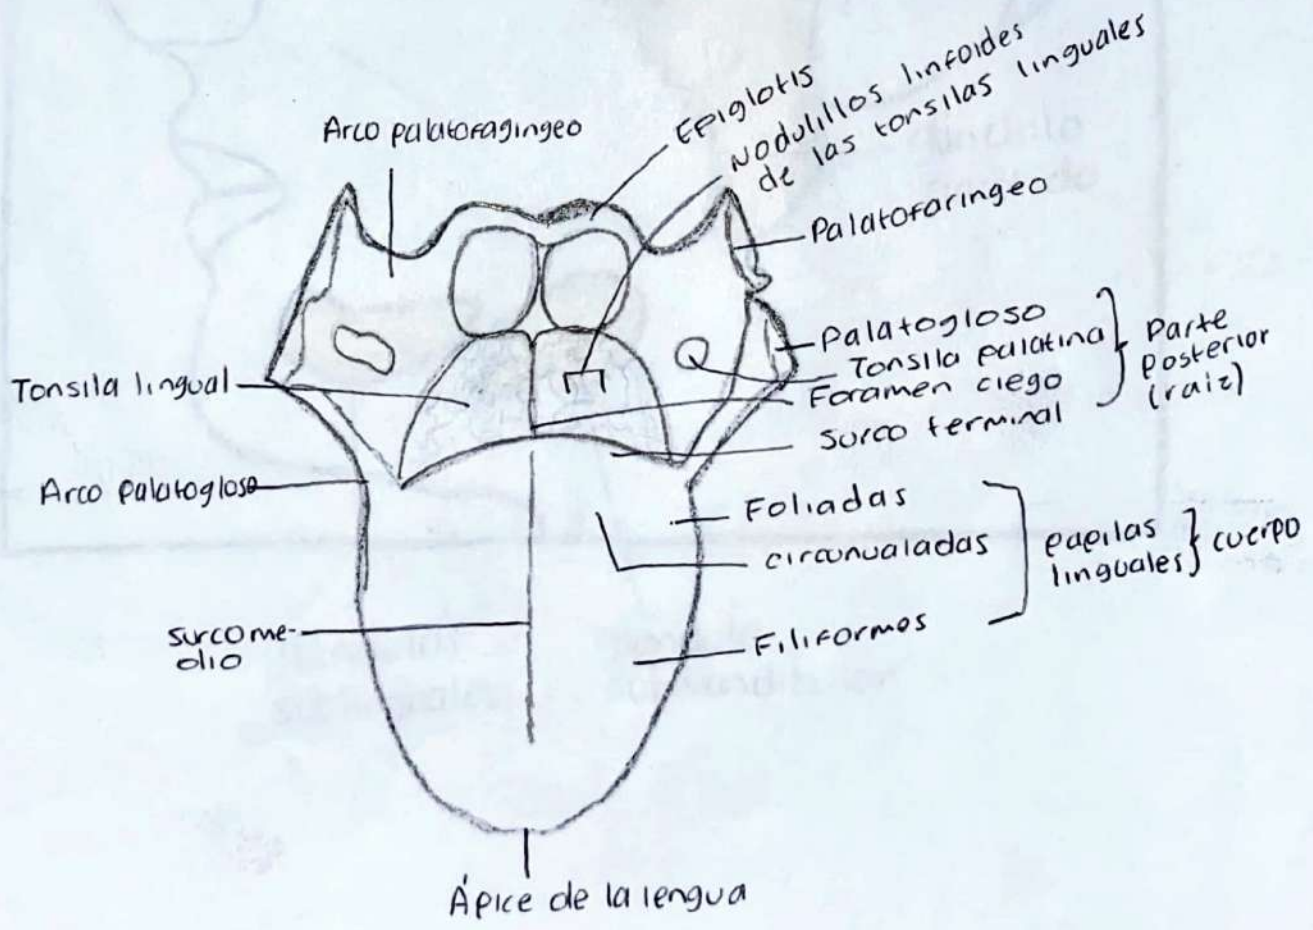 Arco palatofagingeo
Epiglotis
Nodulillos linfoides
de las tonsilas linguales
Palatofaringeo
Palatogloso
Tonsila palatina
Foramen ciego
Surco terminal
Parte
posterior
(raiz)
Tonsila lingual
Arco palatogloso
Foliadas
circunvaladas
Filiformes
papilas
linguales
cuerpo
surco me-
dio
Ápice de la lengua